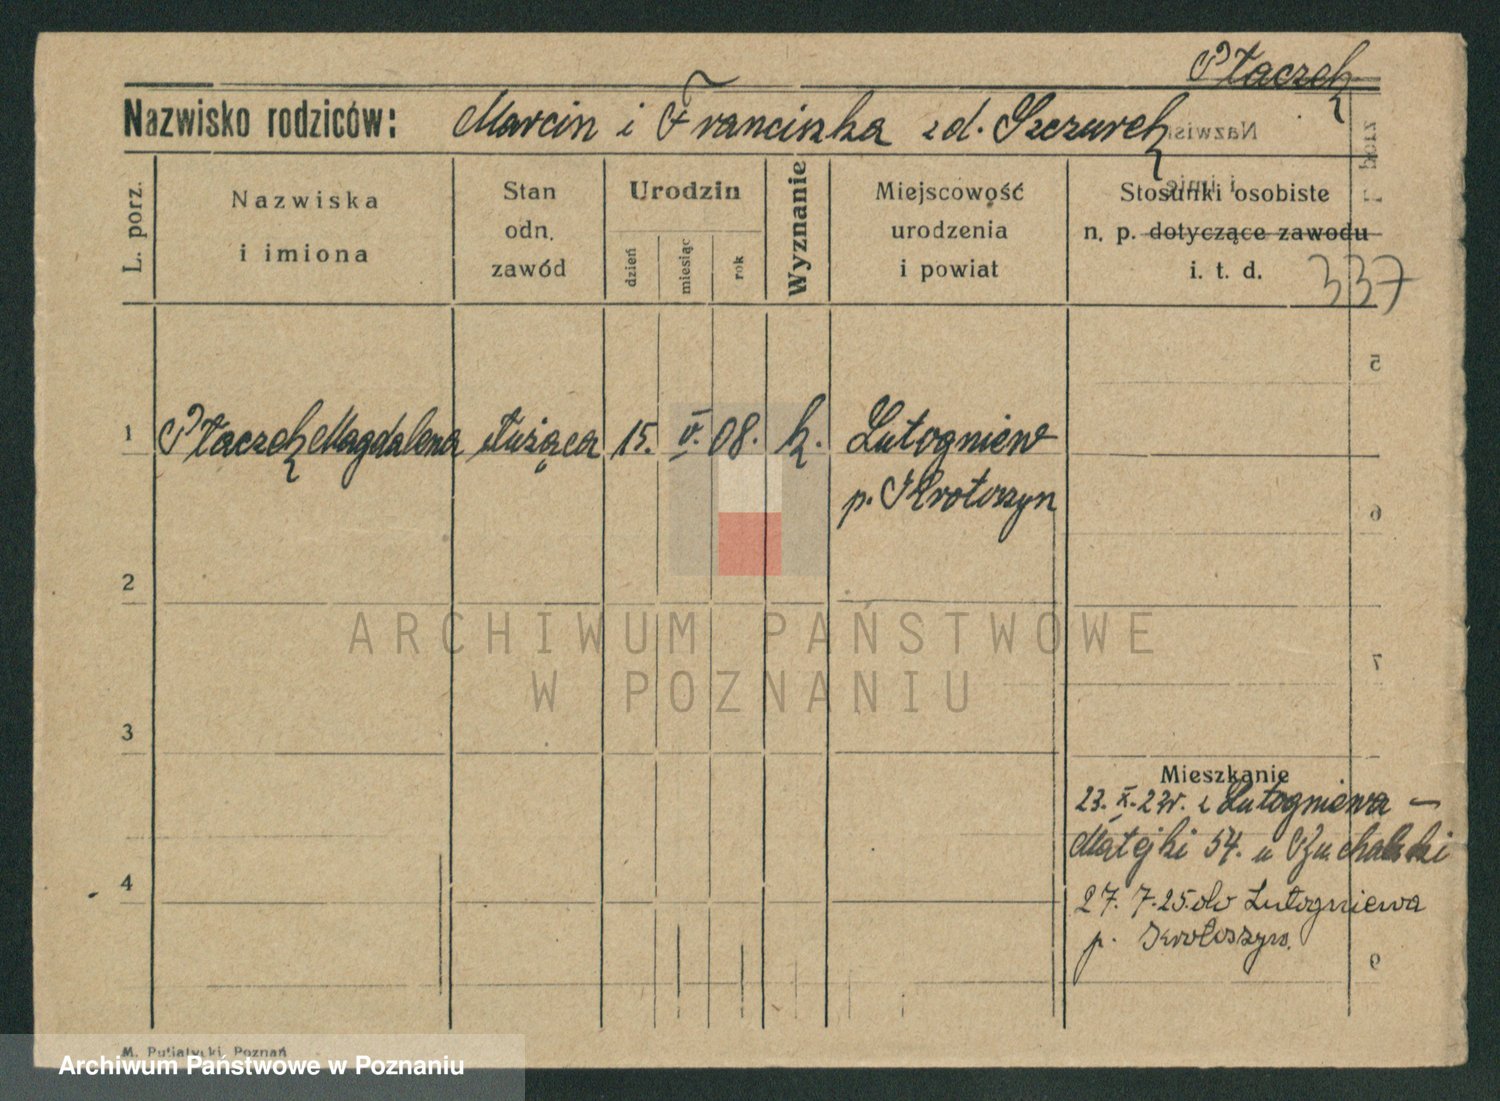 Ptaczek
Nazwisko rodziców: Marcin i Franciszka zd. Szczurek
L. porz.
Nazwiska
i imiona
Stan
odn.
zawód
Urodzin
dzień
miesiąc
rok
Wyznanie
Miejscowość
urodzenia
i powiat
Stosunki osobiste
n. p. dotyczące zawodu
i. t. d.
337
1 Ptaczek Magdalena służąca 15. V. 08. k. Lutogniew
p. Krotoszyn
2
3
4
5
6
7
9
Mieszkanie
23. X. 23r. z Lutogniewa –
Matejki 54. u
27. 7. 25 do Lutogniewa
p. Krotoszyn.
ARCHIWUM PAŃSTWOWE
W POZNANIU
M. Putiatycki, Poznań
Archiwum Państwowe w Poznaniu